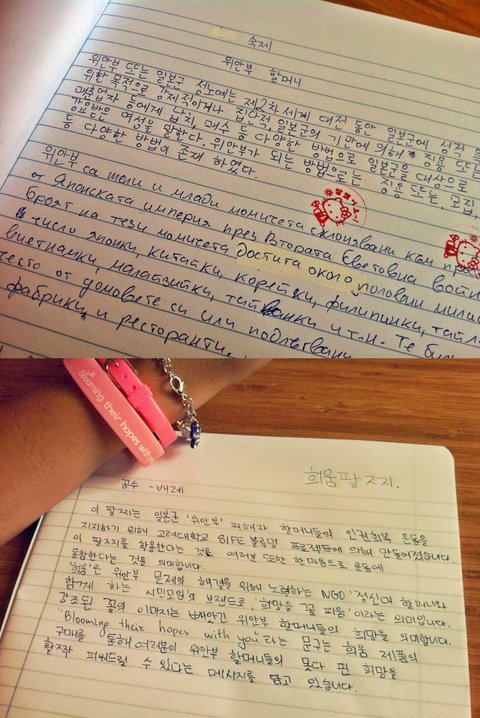 숙제
위안부 할머니
위안부 또는 일본군 성노예는 제2차 세계 대전 동안 일본군에 성적
위한 목적으로 강제적이거나 집단적, 일본군의 기만에 의해 징용 또는
매춘업자 등에게 납치, 매수 등 다양한 방법으로 일본군을 대상으로
여성을 말한다. 위안부가 되는 방법으로는 징용 또는, 모집,
등 다양한 방법이 존재 하였다.
위안부
са тели и млади момичета
от Японската империя през Втората Световна
броят на тези момичета достига около половин
число японки, китайки, корейки, филипинки,
виетнамки, малайзийки, и т.н. Те
често от домовете си или
фабрики и ресторанти.
Blooming their hopes with
희움팔찌.
공수 - 배레
이 팔찌는 일본군 '위안부' 피해자 할머니들의 인권회복 운동을
지지하기 위해 고려대학교 SIFE 블루밍 프로젝트에 의해 만들어졌습니다.
이 팔찌를 착용한다는 것은 여러분 또한 한마음으로 운동에
동참한다는 것을 의미합니다.
'희움'은 위안부 문제의 해결을 위해 노력하는 NGO '정신대 할머니와
함께 하는 시민모임'의 브랜드로 '희망을 꽃 피움'이라는 의미입니다.
강조된 꽃의 이미지는 빼앗긴 위안부 할머니들의 희망을 의미합니다.
"Blooming their hopes with you"라는 문구는 희움 제품의
구매를 통해 여러분이 위안부 할머니들의 못다 핀 희망을
활짝 피워드릴 수 있다는 메시지를 담고 있습니다.